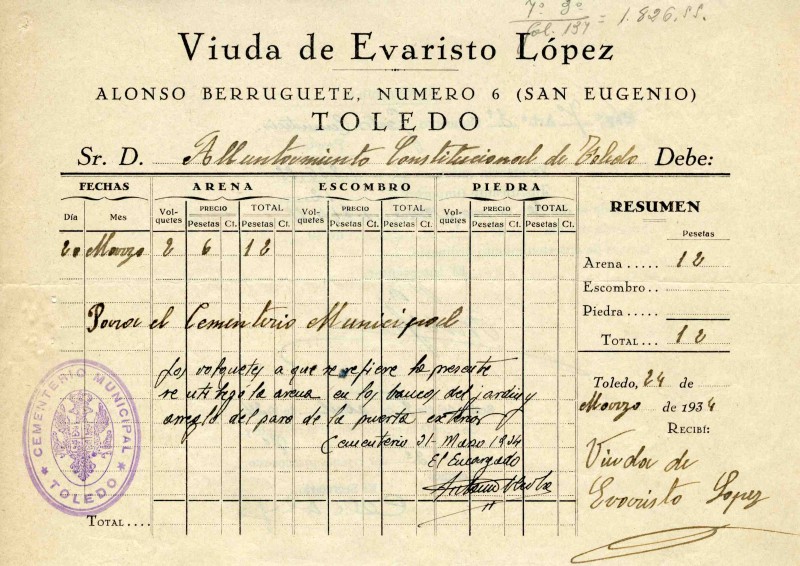 7º 3º
fol. 134 = 1.826,55.
Viuda de Evaristo López
ALONSO BERRUGUETE, NUMERO 6 (SAN EUGENIO)
TOLEDO
Sr. D. Alluntamiento Constitucional de Toledo Debe:
FECHAS ARENA ESCOMBRO PIEDRA RESUMEN
Día Mes Vol-quetes PRECIO Pesetas Ct. TOTAL Pesetas Ct. Vol-quetes PRECIO Pesetas Ct. TOTAL Pesetas Ct. Vol-quetes PRECIO Pesetas Ct. TOTAL Pesetas Ct.
Pesetas
20 Marzo 2 6 12
Arena ..... 12
Escombro ..
Piedra .....
Total ... 12
Para el Cementerio Municipal
Los volquetes a que se refiere la presente
se utilizó la arena en los bancos del jardin y
arreglo del paso de la puerta exterior
Cementerio 31 - Marzo 1934
El Encargado
Toledo, 24 de
Marzo de 1934
RECIBÍ:
Viuda de
Evaristo Lopez
CEMENTERIO MUNICIPAL
* TOLEDO *
Total ....